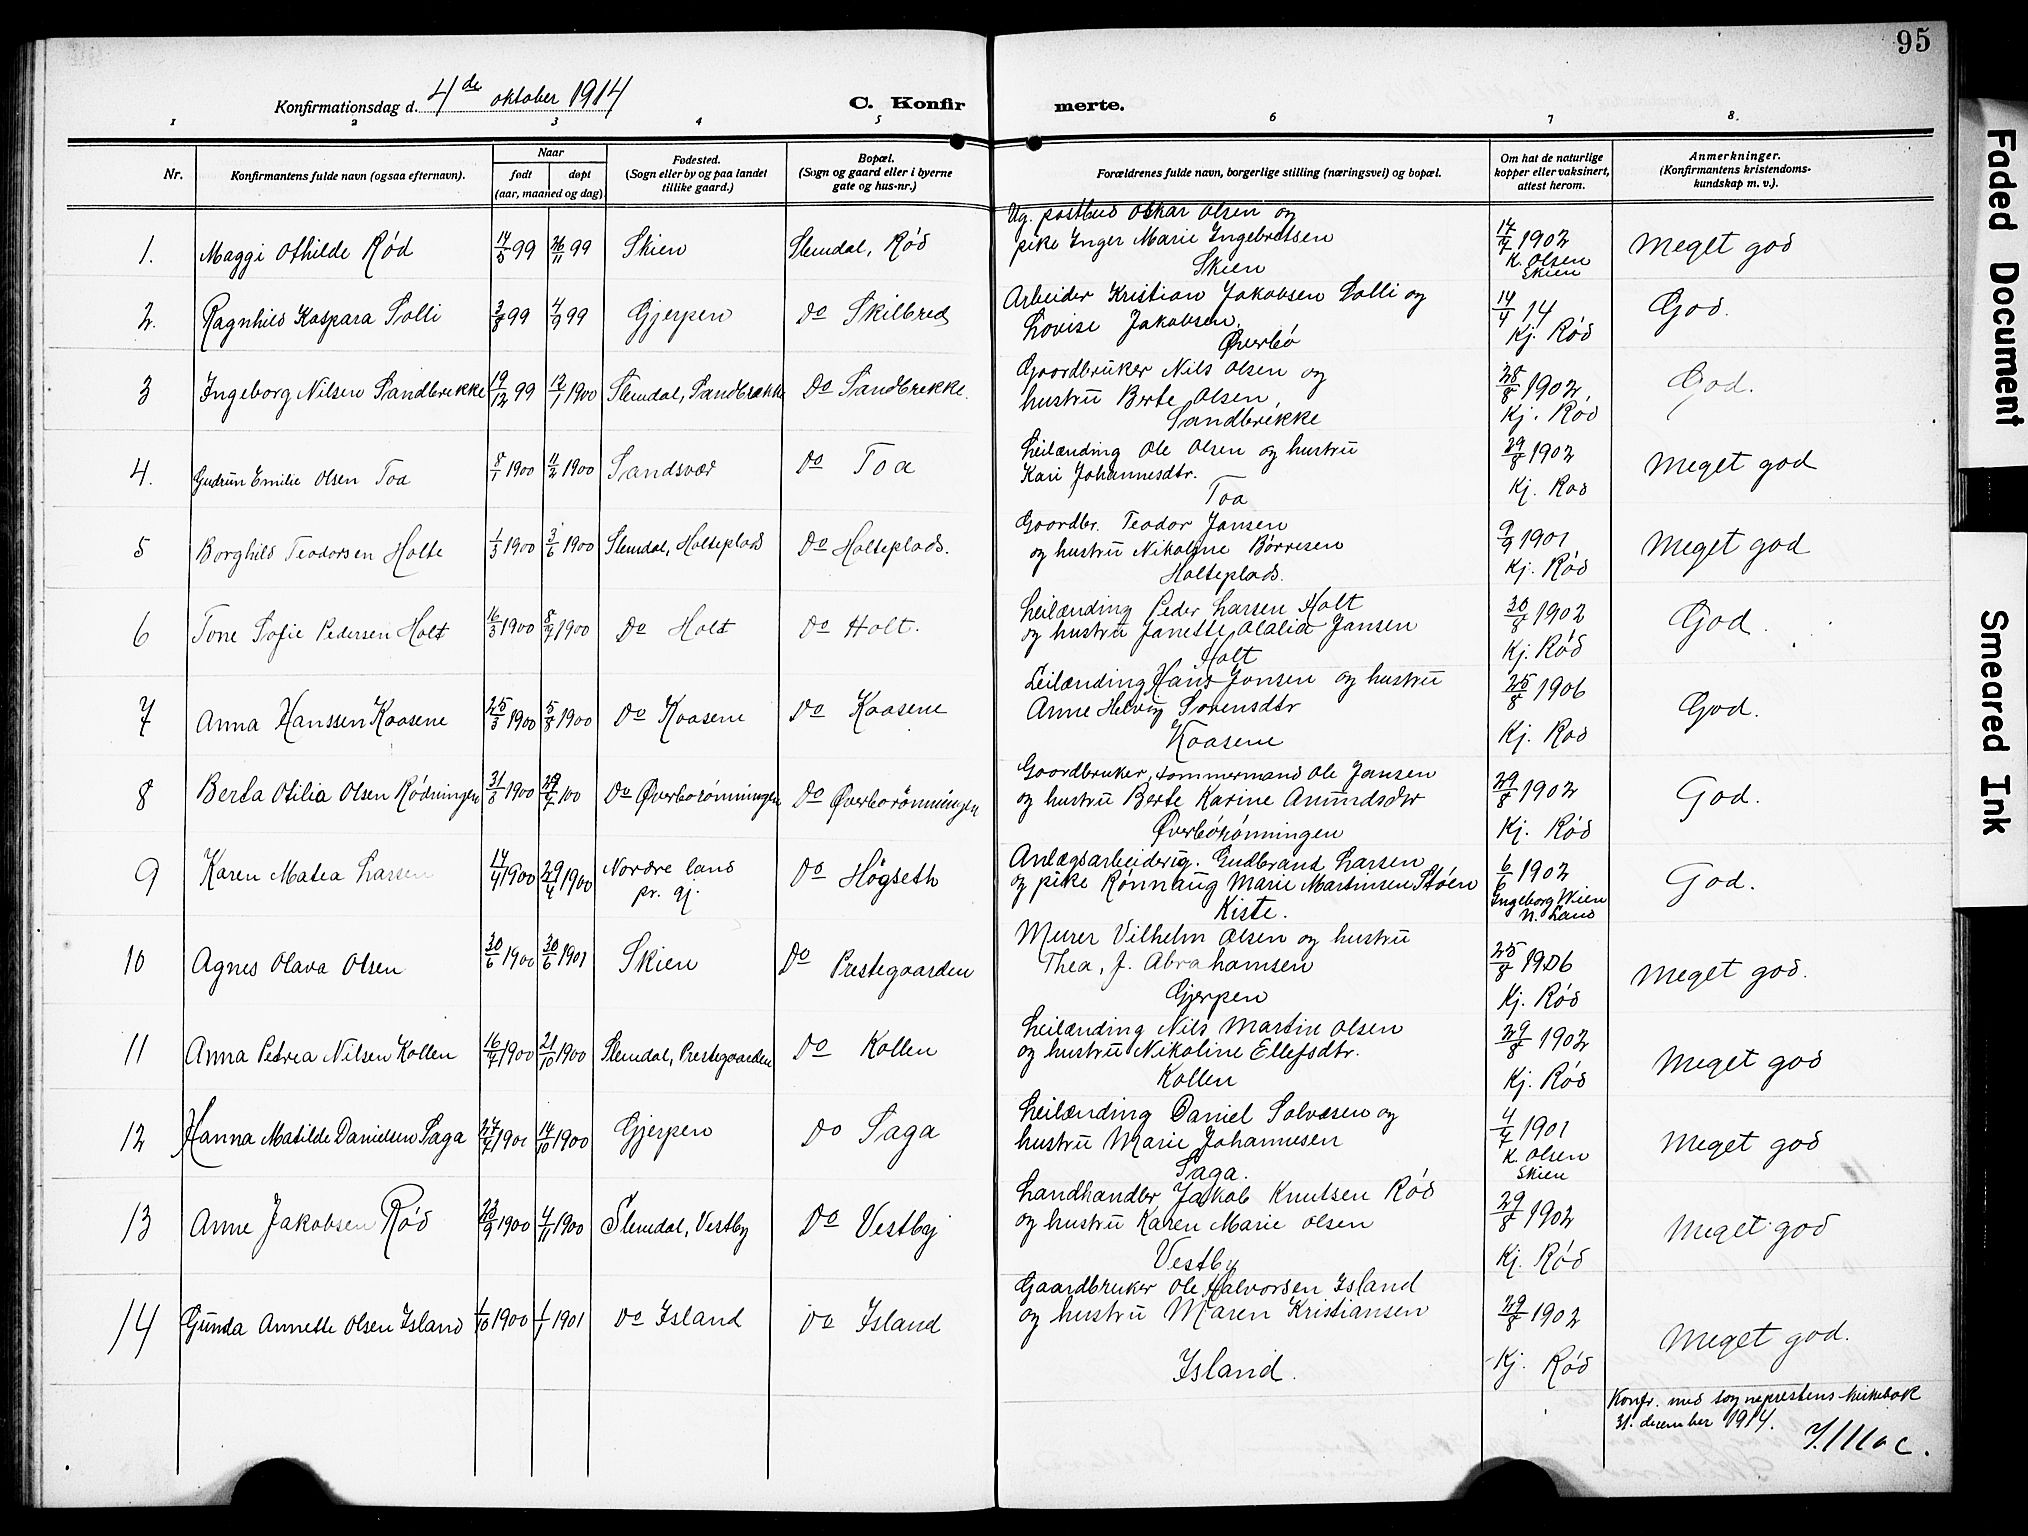 95
Konfirmationsdag d. 4de oktober 1914
C. Konfirmerte.
1 2 3 4 5 6 7 8.
Nr.
Konfirmantens fulde navn (ogsaa efternavn).
Naar
født
døpt
(aar, maaned og dag)
Fødested.
(Sogn eller by og paa landet
tillike gaard.)
Bopæl.
(Sogn og gaard eller i byerne
gate og hus-nr.)
Forældrenes fulde navn, borgerlige stilling (næringsvei) og bopæl.
Om hat de naturlige
kopper eller vaksinert,
attest herom.
Anmerkninger.
(Konfirmantens kristendoms-
kundskap m. v.).
1. Maggi Othilde Rød 14/5 99 26/11 99 Skien Slemdal, Rød
Ug. postbud Oskar Olsen og
pike Inger Marie Ingebretsen
Skien
14/7 1902
K. Olsen
Skien
Meget god
2. Ragnhild Kaspara Solli 3/8 99 4/9 99 Gjerpen Do Skilbred
Arbeider Kristian Jakobsen Solli og
Lovise Jakobsen,
Øverbø
14/4 14
Kj. Rød
God.
3 Ingeborg Nilsen Sandbrekke 19/12 99 12/1 1900 Slemdal, Sandbrække Do Sandbrekke.
Goordbruker Nils Olsen og
hustru Berte Olsen,
Sandbrekke
28/8 1902,
Kj. Rød
God.
4. Gudrun Emilie Olsen Toa 8/1 1900 11/2 1900 Sandsvær Do Toa
Leilænding Ole Olsen og hustru
Kari Johannesdtr.
Toa
29/8 1902
Kj. Rød
Meget god
5 Borghild Teodorsen Holte 1/3 1900 3/6 1900 Slemdal, Holteplads Do Holteplads.
Goordbr. Teodor Jansen
og hustru Nikoline Børresen
Holteplads.
9/9 1901
Kj. Rød
Meget god
6 Tone Sofie Pedersen Holt 16/3 1900 8/7 1900 Do Holt Do Holt.
Leilænding Peder Larsen Holt
og hustru Janette Alalia Jansen
Holt
30/8 1902
Kj. Rød
God.
7 Anna Hanssen Kaasene 25/3 1900 5/8 1900 Do Kaasene Do Kaasene
Leilænding Hans Jonsen og hustru
Anne Helvig Sørensdtr
Kaasene
25/8 1906
Kj. Rød
God.
8 Berta Otilia Olsen Rødningen 31/3 1900 29/7 100 Do Øverbørønningen Do Øverbørønningen
Goordbruker, tømmermand Ole Jansen
og hustru Berte Karine Amundsdtr
Øverbørønningen
29/8 1902
Kj. Rød
God.
9 Karen Matea Larsen 14/4 1900 29/4 1900 Nordre land
pr. gj.
Do Høgseth
Anlægsarbeider ug. Gudbrand Larsen
og pike Rønnaug Marie Martinsen Støen
Kiste.
6/6 1902
Ingeborg Wien
N. Land
God.
10 Agnes Olava Olsen 30/6 1900 30/6 1901 Skien Do Prestegaarden
Murer Vilhelm Olsen og hustru
Thea, f. Abrahamsen
Gjerpen
25/8 1906
Kj. Rød
Meget god.
11 Anna Petrea Nilsen Kollen 16/7 1900 21/10 1900 Slemdal, Prestegaarden Do Kollen
Leilænding Nils Martin Olsen
og hustru Nikoline Ellefsdtr.
Kollen
29/8 1902
Kj. Rød
Meget god
12 Hanna Matilde Danielsen Saga 27/7 1900 14/10 1900 Gjerpen Do Saga
Leilænding Daniel Solvesen og
hustru Marie Johannesen
Saga.
4/7 1901
K. Olsen
Skien
Meget god
13 Anne Jakobsen Rød 23/9 1900 4/11 1900 Slemdal, Vestby Do Vestby
Landhandler Jakob Knutsen Rød
og hustru Karen Marie Olsen
Vestby
29/8 1902
Kj. Rød
Meget god
14 Gunda Annette Olsen Island 1/10 1900 1/1 1901 Do Island Do Island
Gaardbruker Ole Halvorsen Island
og hustru Maren Kristiansen
Island.
29/8 1902
Kj. Rød
Meget god.
Konfr. med sogneprestens kirkebok
31. december 1914.
Faded Document
Smeared Ink